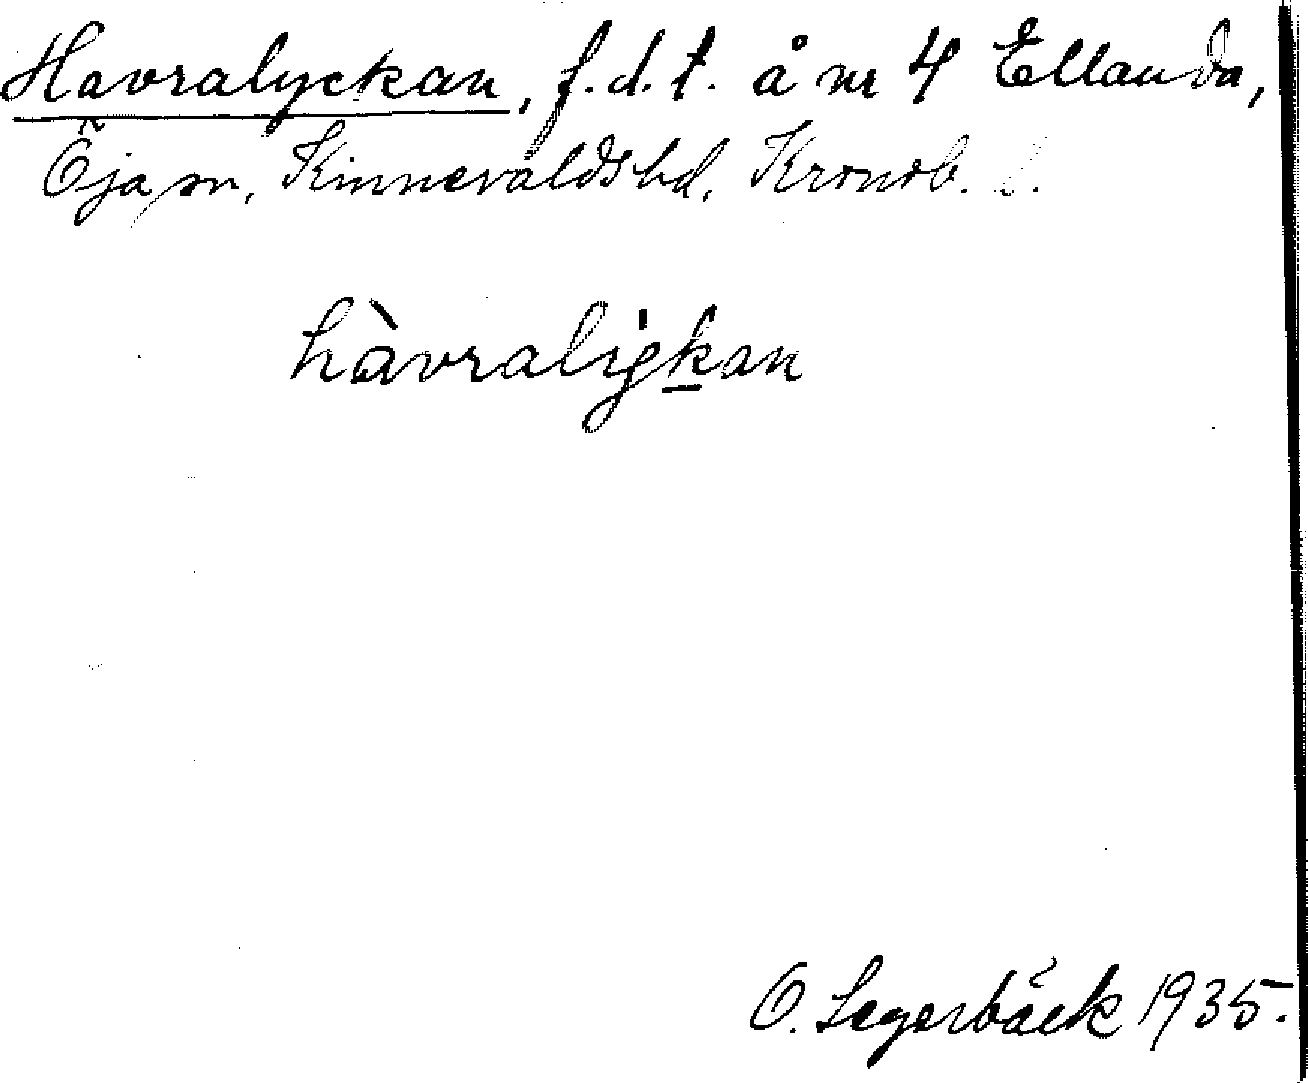 Havralyckan, f.d.t. å nr 4 Ellanda,
Öja sn, Kinnevalds hd, Kronob. l.
hàvraligkan
O. Segerbäck 1935.